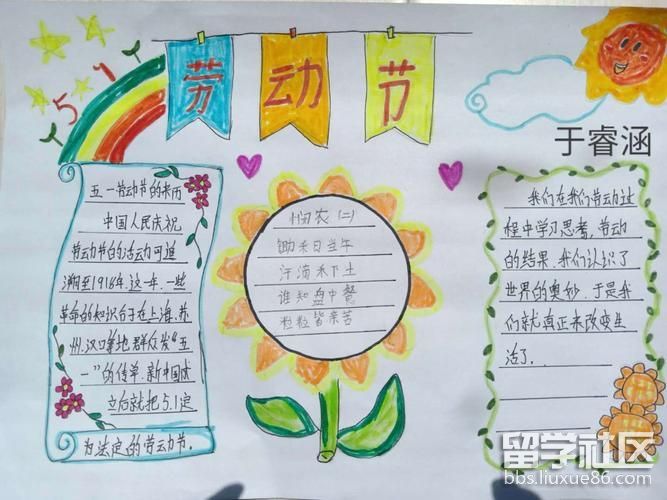 5 1
劳动节
于睿涵
五一劳动节的来历
中国人民庆祝
劳动节的活动可追
溯至1918年.这一年.一些
革命的知识分子在上海.苏
州.汉口等地群众发“五
一”的传单.新中国成
立后就把5.1定
为法定的劳动节.
悯农(二)
锄禾日当午
汗滴禾下土
谁知盘中餐
粒粒皆亲苦
我们在我们劳动过
程中学习思考,劳动
的结果,我们认识了
世界的奥妙.于是我
们就真正来改变生
活了.
留学社区
bbs.liuxue86.com